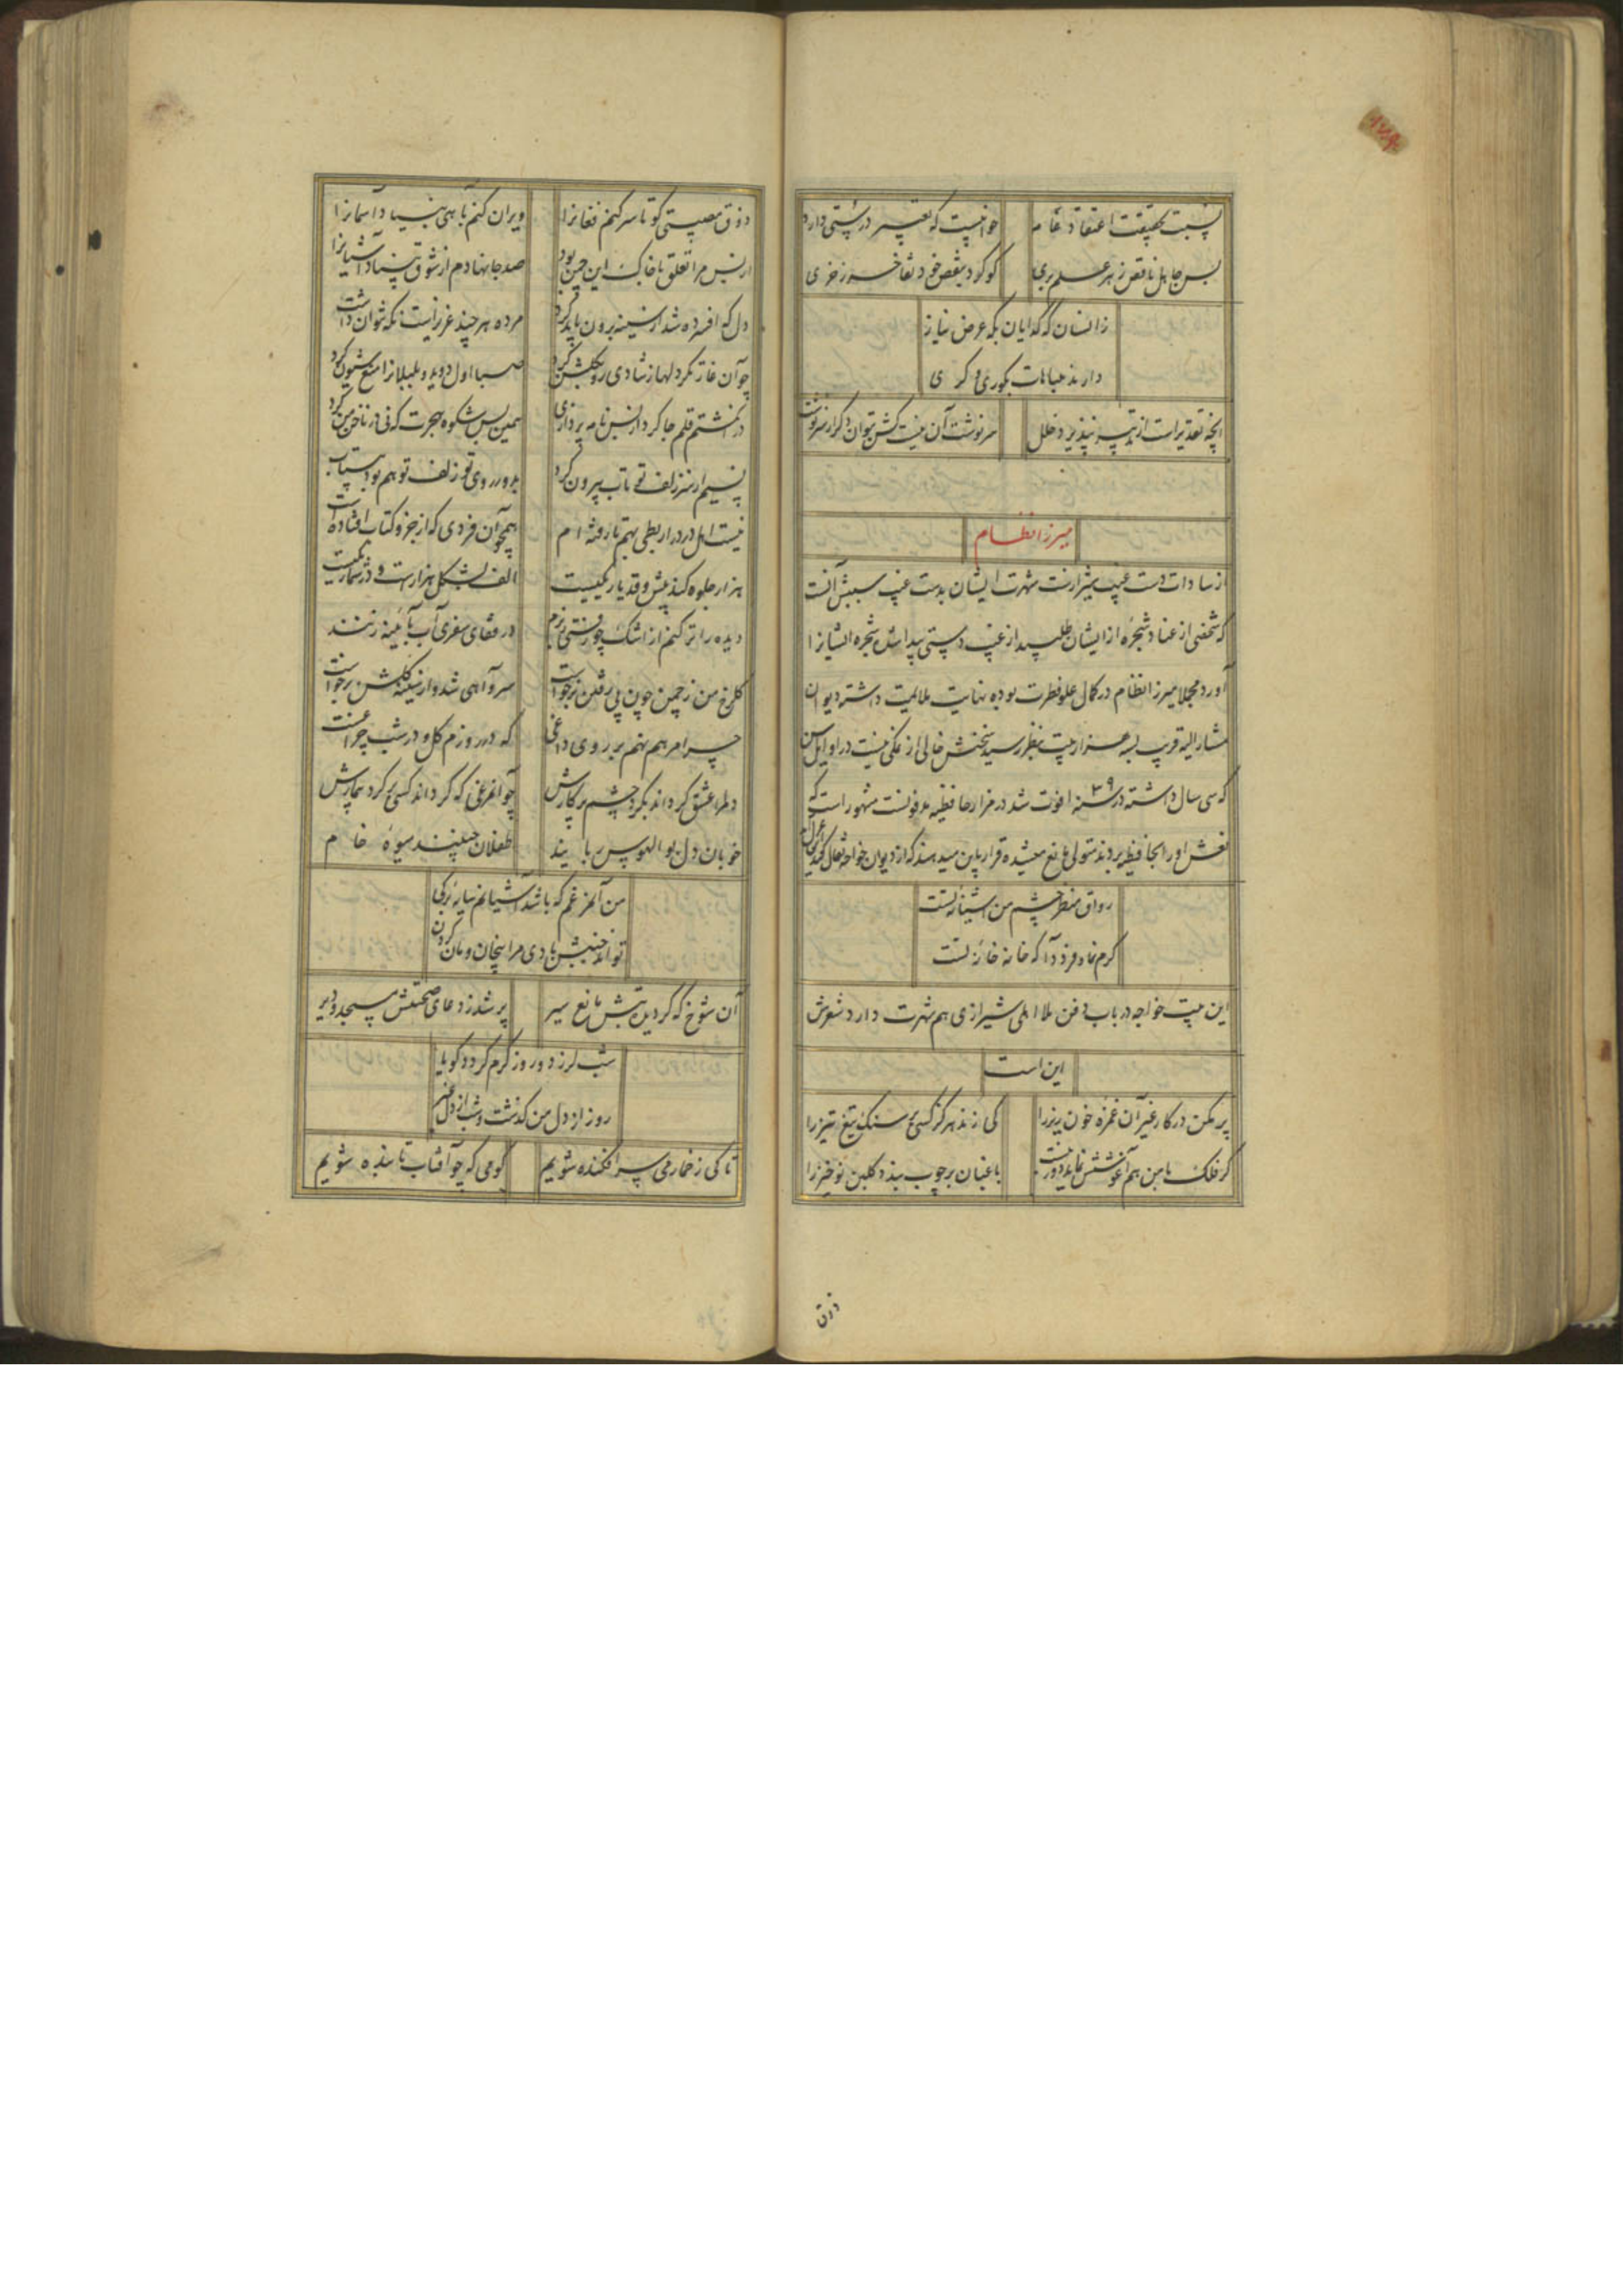 نسبت بحقیقت اعتقاد عامه خوابیست که تعبیر درستی دارد
بس جاهل ناقص ز هر علم بری کو کرد بنقص خود تفاخر ز خری
زانسان که گدایان بگه عرض نیاز
دارند مباهات بکوری و کری
آنچه تقدیر است از تدبیر نپذیرد خلل سرنوشت آن نیست کش بتوان دگر از سر نوشت
میرزا نظام
از سادات دست غیب شیرازست شهرت ایشان بدست غیب سببش آنست
که شخصی از عناد شجره از ایشان طلبید از غیب دستی پیدا شد شجره ایشانرا
آورد مجملا میرزا نظام در کمال علو فطرت بوده نهایت ملایمت داشته دیوان
مشار الیه قریب بسه هزار بیت بنظر رسید سخنش خالی از نمکی نیست در اوایل سن
که سی سال داشته در سنه ۱۰۳۹ فوت شد در مزار حافظیه مدفونست مشهور است که
نعش او را بحافظیه بردند متولی مانع میشده قرار باین میدهند که از دیوان خواجه تفأل کنند این غزل
رواق منظر چشم من آشیانه تست
کرم نما و فرود آ که خانه خانه تست
این بیت خواجه در باب دفن ملا اهلی شیرازی هم شهرت دارد شعرش
این است
پر مکن در کار غیر آن غمزه خون ریز را کی زند هرگز کسی بر سنگ تیغ تیز را
گر فلک با من هم آغوشش نماید دور نیست باغبان بر چوب بندد گلبن نوخیز را
ذوق
ذوق مصیبتی کو تا سر کنم فغانرا ویران کنم بآهی بنیاد آسمانرا
از بس مرا تعلق با خاک این چمن بود صد جا نهادم از شوق بنیاد آشیانرا
دل که افسرده شد از سینه برون باید کرد مرده هر چند عزیز است نگه نتوان داشت
چو آن غارتگر دلها ز شادی رو بگلشن کرد صبا اول دوید و بلبلانرا منع شیون کرد
در انگشتم قلم جا کرد از بس نامه پردازی همین بس شکوه هجرت که نی در ناخن من کرد
نسیم از سر زلف تو تاب بیرون کرد بدور روی تو زلف تو هم بود بیتاب
نیست اهل درد را ربطی بهم تا رفته ام همچو آن فردی که از جزو کتاب افتاده است
هزار جلوه کند پیش و قد یار یکیست الف بشکل هزارست و در شمار یکیست
دیده را تر کنم از اشک چو رفتی ز برم در قفای سفری آب بآئینه زنند
گلرخ من ز چمن چون پی رفتن برخواست سرو آهی شد و از سینه گلشن برخواست
چرا مرهم نهم بر روی داغی که در روزم گل و در شب چراغست
دلم را عشق گرداند بگرد چشم پرکارش چو آن مرغی که گرداند کسی بر گرد بیمارش
خوبان دل بوالهوس ربایند طفلان چینند میوه خام
من آن مرغم که باشد آشیانم سایه برگی
تواند جنبش بادی مرا بیخان و مان کردن
آن شوخ که گردید تبش مانع سیر پر شد ز دعای صحتش مسجد و دیر
شب لرزد و روز گرم گردد گویا
روز از دل من گذشت و شب از دل غیر
تا کی ز خمار می سرافکنده شویم کو می که چو آفتاب تابنده شویم